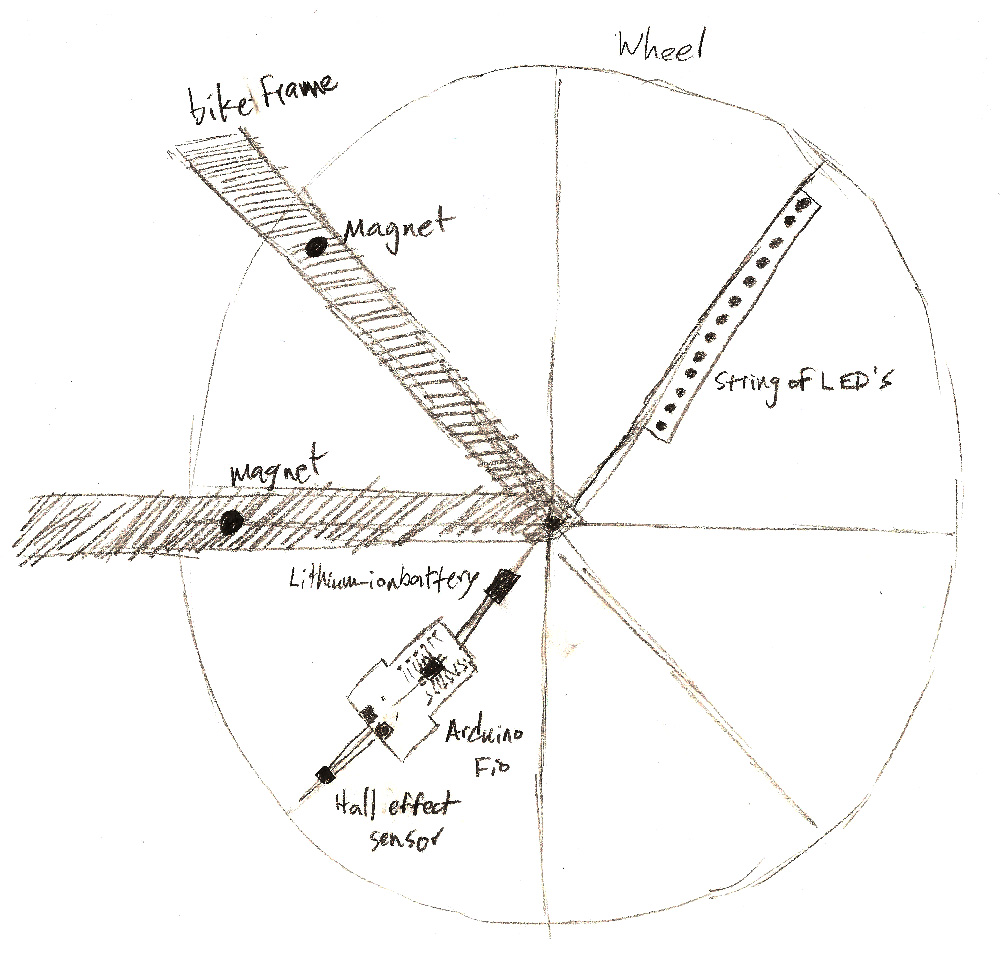 Wheel
bike frame
Magnet
String of LED's
magnet
Lithium-ion battery
Arduino
Fio
Hall effect
sensor